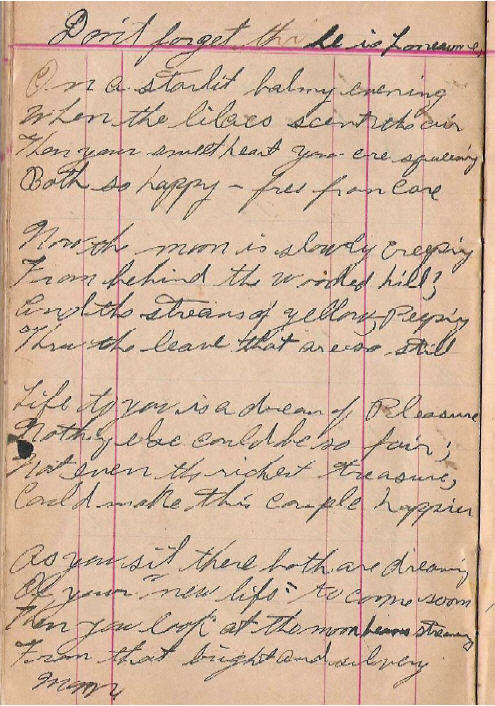 Don't forget he is Lonesome,
On a starlit balmy evening
When the lilacs scent the air
Then your sweetheart you are
Both so happy - free from Care
Now the moon is slowly creeping
From behind the wooded hill;
And the streams of yellow, Peeping
Thru the leave that are so still
Life to you is a dream of Pleasure
Nothing else could be so fair;
Not even the richest treasure,
Could make this couple happier
As you sit there both are dreaming
Of your "new life" to come soon
Then you look at the moon beams streaming
From that bright and silvery
moon,